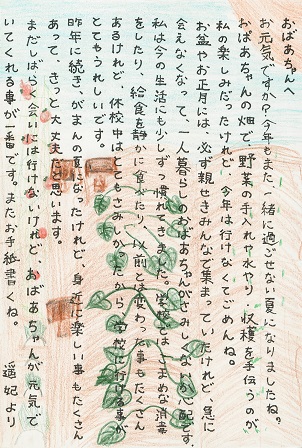 おばあちゃんへ
お元気ですか?今年もまた一緒に過ごせない夏になりましたね。
おばあちゃんの畑で、野菜の手入れや水やり、収穫を手伝うのが、
私の楽しみだったけれど、今年は行けなくてごめんね。
お盆やお正月には、必ず親せきみんなで集まっていたけれど、急に
会えなくなって、一人暮らしのおばあちゃんがさみしくないか心配です。
私は今の生活にも少しずつ慣れてきました。学校では、こまめな消毒
をしたり、給食を静かに食べたり、以前とは変わった事もたくさん
あるけれど、休校中はとてもさみしかったから、学校に行ける事が
とてもうれしいです。
昨年に続き、がまんの夏になったけれど、身近に楽しい事もたくさん
あって、きっと大丈夫だと思います。
まだしばらく会いには行けないけれど、おばあちゃんが元気で
いてくれる事が一番です。またお手紙書くね。
遥妃より